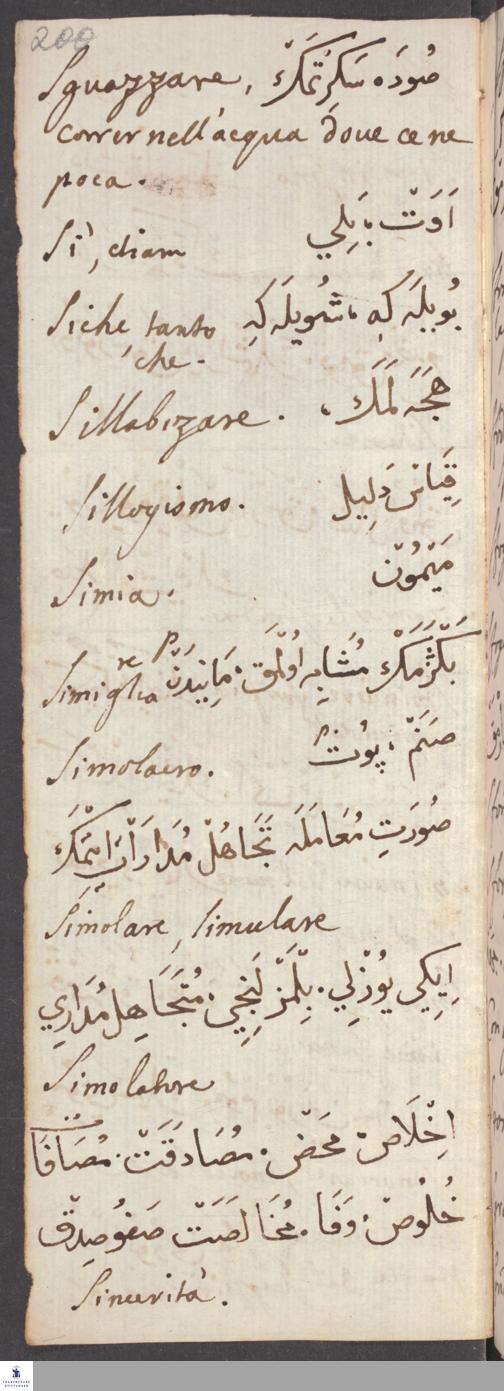 200
Sguazzare, صُودَه سَكِرْتْمَكْ
correr nell'acqua doue ce ne
poca.
Si, chiam اَوَتْ ، بَلِي
Siche, tanto بُويلَه كِه ، شُويلَه كِه
che.
Sillabizare. هِجَه لَمَكْ
Sillogismo. قِيَاس دَلِيل
Simia. مَيْمُونْ
Simigliare بَكْزَمَكْ مُشَابِه اُولْمَقْ ، مَانِيْدَنْ P
Simolacro. صَنَمْ ، پُوتْ P
صُورَتِ مُعَامَلَه تَجَاهُلْ مُدَارَاتْ اِتْمَكْ
Simolare, simulare
اِيكِي يُوزْلِي . بِلْمَزْ لَنِيجِي . مُتَجَاهِل مُدَارِي
Simolatore
اِخْلَاصْ . مَحَضْ . مُصَادَقَتْ . مُصَافَاتْ
خُلُوصْ . وَفَا . مُخَالَصَتْ صَفْو صِدْقْ
Sincerità.
FRANCKESCHE
STIFTUNGEN